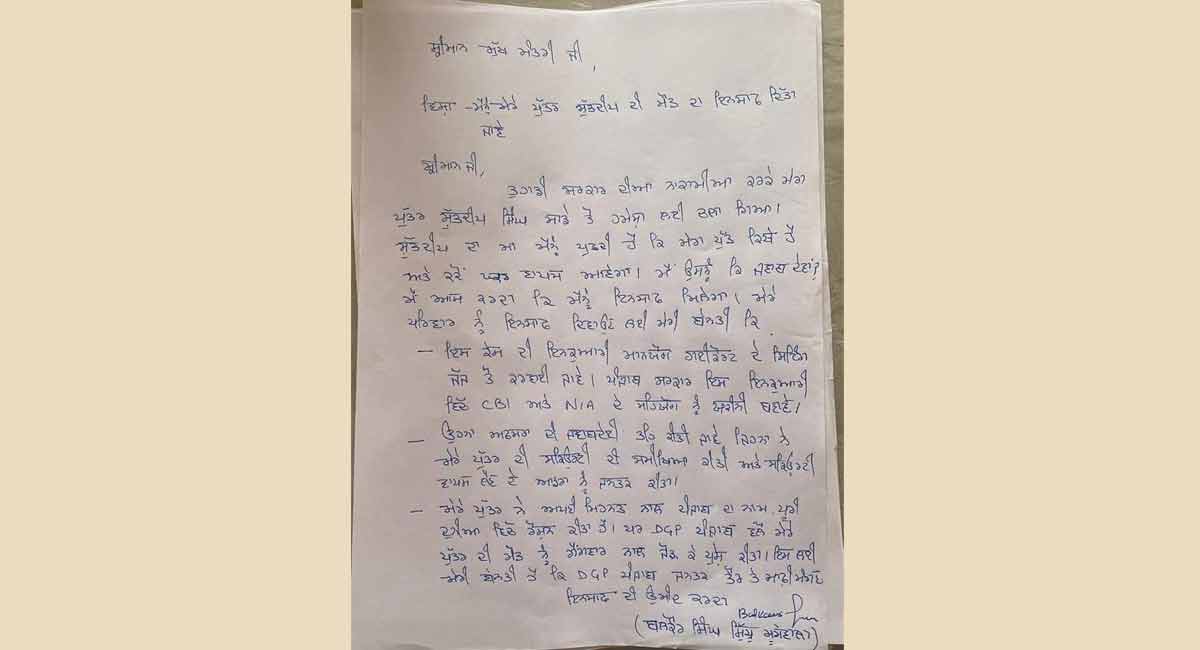 ਸ਼੍ਰੀਮਾਨ ਮੁੱਖ ਮੰਤਰੀ ਜੀ,
ਵਿਸ਼ਾ - ਮੈਨੂੰ ਮੇਰੇ ਪੁੱਤਰ ਸ਼ੁੱਭਦੀਪ ਦੀ ਮੌਤ ਦਾ ਇਨਸਾਫ ਦਿੱਤਾ
ਜਾਵੇ
ਸ਼੍ਰੀਮਾਨ ਜੀ,
ਤੁਹਾਡੀ ਸਰਕਾਰ ਦੀਆ ਨਾਕਾਮੀਆ ਕਰਕੇ ਮੇਰਾ
ਪੁੱਤਰ ਸ਼ੁੱਭਦੀਪ ਸਿੰਘ ਸਾਡੇ ਤੋਂ ਹਮੇਸ਼ਾ ਲਈ ਚਲਾ ਗਿਆ।
ਸ਼ੁੱਭਦੀਪ ਦਾ ਮਾ ਮੈਨੂੰ ਪੁਛਦੀ ਹੈ ਕਿ ਮੇਰਾ ਪੁੱਤ ਕਿਥੇ ਹੈ
ਅਤੇ ਕਦੋਂ ਘਰ ਵਾਪਸ ਆਵੇਗਾ। ਮੈਂ ਉਸਨੂੰ ਕਿ ਜਵਾਬ ਦੇਵਾਂ?
ਮੈਂ ਆਸ ਕਰਦਾ ਕਿ ਮੈਨੂੰ ਇਨਸਾਫ ਮਿਲੇਗਾ। ਮੇਰੇ
ਪਰਿਵਾਰ ਨੂੰ ਇਨਸਾਫ ਦਿਵਾਉਣ ਲਈ ਮੇਰੀ ਬੇਨਤੀ ਕਿ
- ਇਸ ਕੇਸ ਦੀ ਇਨਕੁਆਰੀ ਮਾਨਯੋਗ ਹਾਈਕੋਰਟ ਦੇ ਸਿਟਿੰਗ
ਜੱਜ ਤੋਂ ਕਰਵਾਈ ਜਾਵੇ। ਪੰਜਾਬ ਸਰਕਾਰ ਇਸ ਇਨਕੁਆਰੀ
ਵਿਚ CBI ਅਤੇ NIA ਦੇ ਸਹਿਯੋਗ ਨੂੰ ਯਕੀਨੀ ਬਣਾਵੇ।
- ਉਹਨਾ ਅਫਸਰਾ ਦੀ ਜਵਾਬਦੇਹੀ ਤਹਿ ਕੀਤੀ ਜਾਵੇ ਜਿਹਨਾ ਨੇ
ਮੇਰੇ ਪੁੱਤਰ ਦੀ ਸਕਿਉਰਟੀ ਦੀ ਸਮੀਖਿਆ ਕੀਤੀ ਅਤੇ ਸਕਿਉਰਟੀ
ਵਾਪਸ ਲੈਣ ਦੇ ਆਡਰਾ ਨੂੰ ਜਨਤਕ ਕੀਤਾ।
- ਮੇਰੇ ਪੁੱਤਰ ਨੇ ਆਪਣੀ ਮਿਹਨਤ ਨਾਲ ਪੰਜਾਬ ਦਾ ਨਾਮ ਪੂਰੀ
ਦੁਨੀਆ ਵਿਚ ਰੌਸ਼ਨ ਕੀਤਾ ਹੈ। ਪਰ DGP ਪੰਜਾਬ ਵਲੋਂ ਮੇਰੇ
ਪੁੱਤਰ ਦੀ ਮੌਤ ਨੂੰ ਗੈਂਗਵਾਰ ਨਾਲ ਜੋੜ ਕੇ ਪੇਸ਼ ਕੀਤਾ। ਇਸ ਲਈ
ਮੇਰੀ ਬੇਨਤੀ ਹੈ ਕਿ DGP ਪੰਜਾਬ ਜਨਤਕ ਤੌਰ ਤੇ ਮਾਫ਼ੀ ਮੰਗਣ
ਇਨਸਾਫ ਦੀ ਉਮੀਦ ਕਰਦਾ
(ਬਲਕੌਰ ਸਿੰਘ ਸਿੱਧੂ ਮੂਸੇਵਾਲਾ)